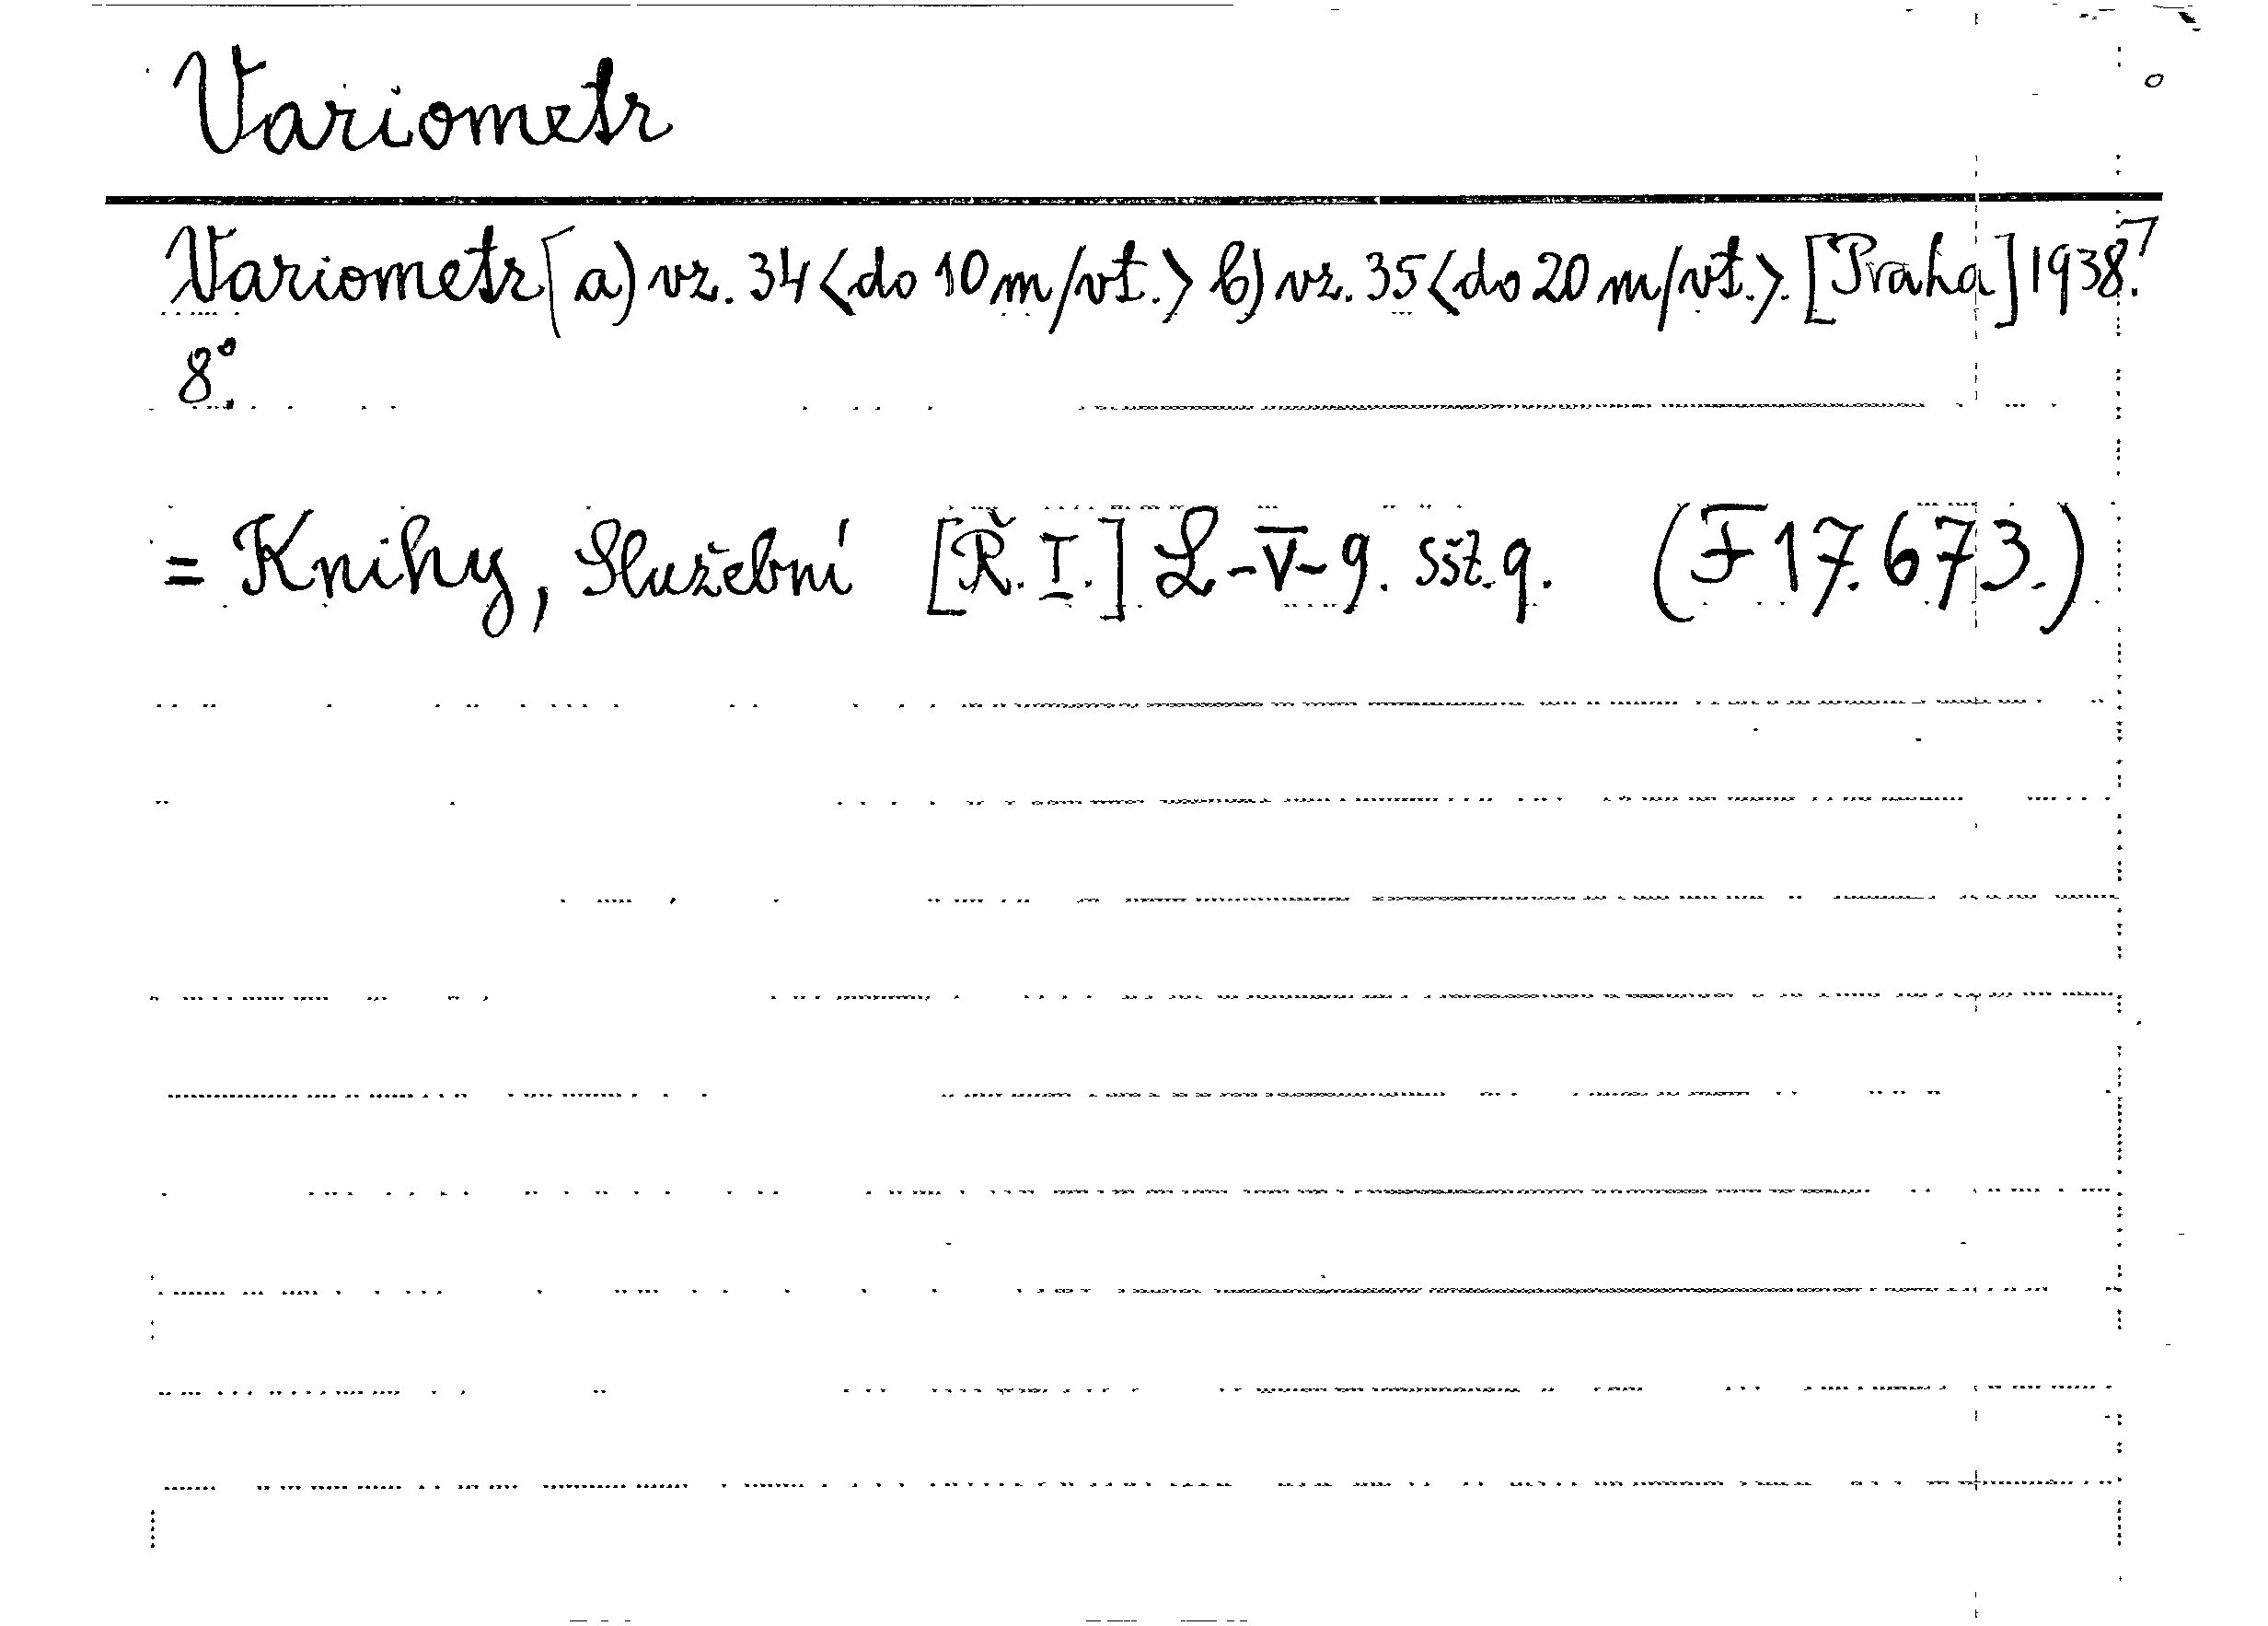 Variometr
Variometr [a) vz. 34 <do 10 m/vt.> b) vz. 35 <do 20 m/vt.>. [Praha] 1938.
8°.
= Knihy, Služební [Ř. I.] L-V-9. sšt. 9. (F 17.673.)